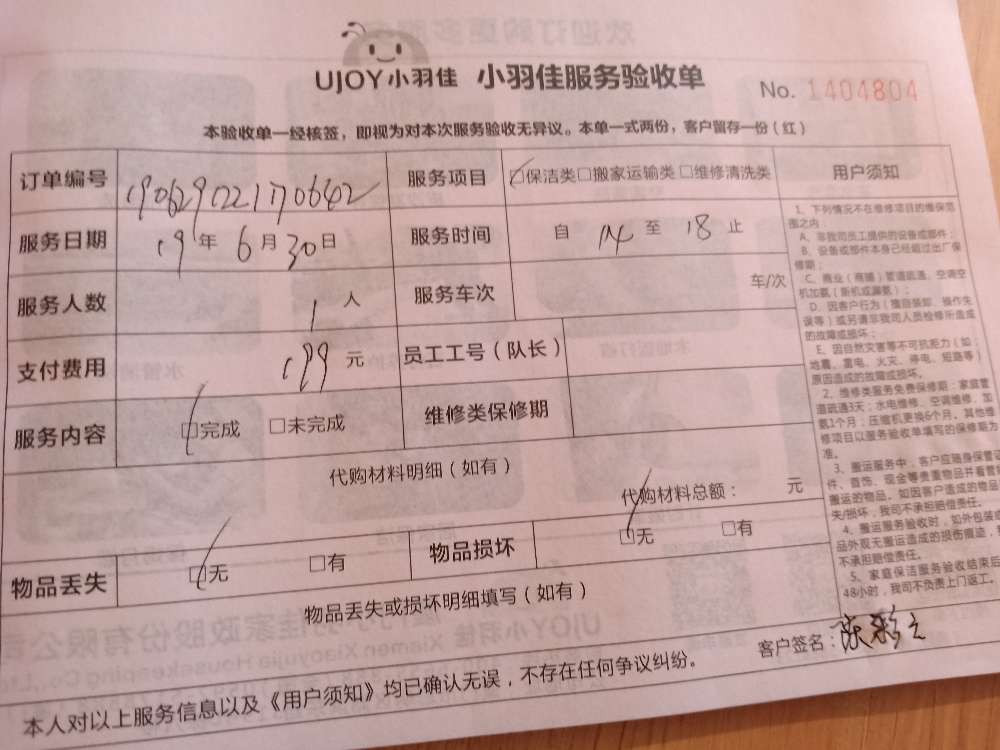 UJOY小羽佳 小羽佳服务验收单
No. 1404804
本验收单一经核签，即视为对本次服务验收无异议。本单一式两份，客户留存一份（红）
订单编号 190629221170642 服务项目 □保洁类□搬家运输类□维修清洗类
服务日期 19年6月30日 服务时间 自 14 至 18 止
服务人数 1 人 服务车次 车/次
支付费用 199 元 员工工号（队长）
服务内容 □完成 □未完成 维修类保修期
代购材料明细（如有）
代购材料总额： 元
物品丢失 □无 □有 物品损坏 □无 □有
物品丢失或损坏明细填写（如有）
用户须知
1、下列情况不在维修项目的维保范
围之内
A、非我司员工提供的设备或部件；
B、设备或部件本身已经超过出厂保
修期；
C、商业（商铺）管道疏通、空调空
机加氨（新机或漏氨）；
D、因客户行为（擅自装卸、操作失
误等）或另请非我司人员检修所造成
的故障或损坏；
E、因自然灾害等不可抗拒力（如：
地震、雷电、火灾、停电、短路等）
原因造成的故障或损坏。
2、维修类服务免费保修期：家庭管
道疏通3天；水电维修、空调维修、加
氨1个月；压缩机更换6个月。其他维
修项目以服务验收单填写的保修期为
准。
3、搬运服务中，客户应随身保管证
件、首饰、现金等贵重物品并看管
搬运的物品。如因客户造成的物品
失/损坏，我司不承担赔偿责任。
4、搬运服务验收时，如外包装或
品外观无搬运造成的损伤痕迹，
不承担赔偿责任。
5、家庭保洁服务验收结束后
48小时，我司不负责上门返工。
客户签名：
本人对以上服务信息以及《用户须知》均已确认无误，不存在任何争议纠纷。